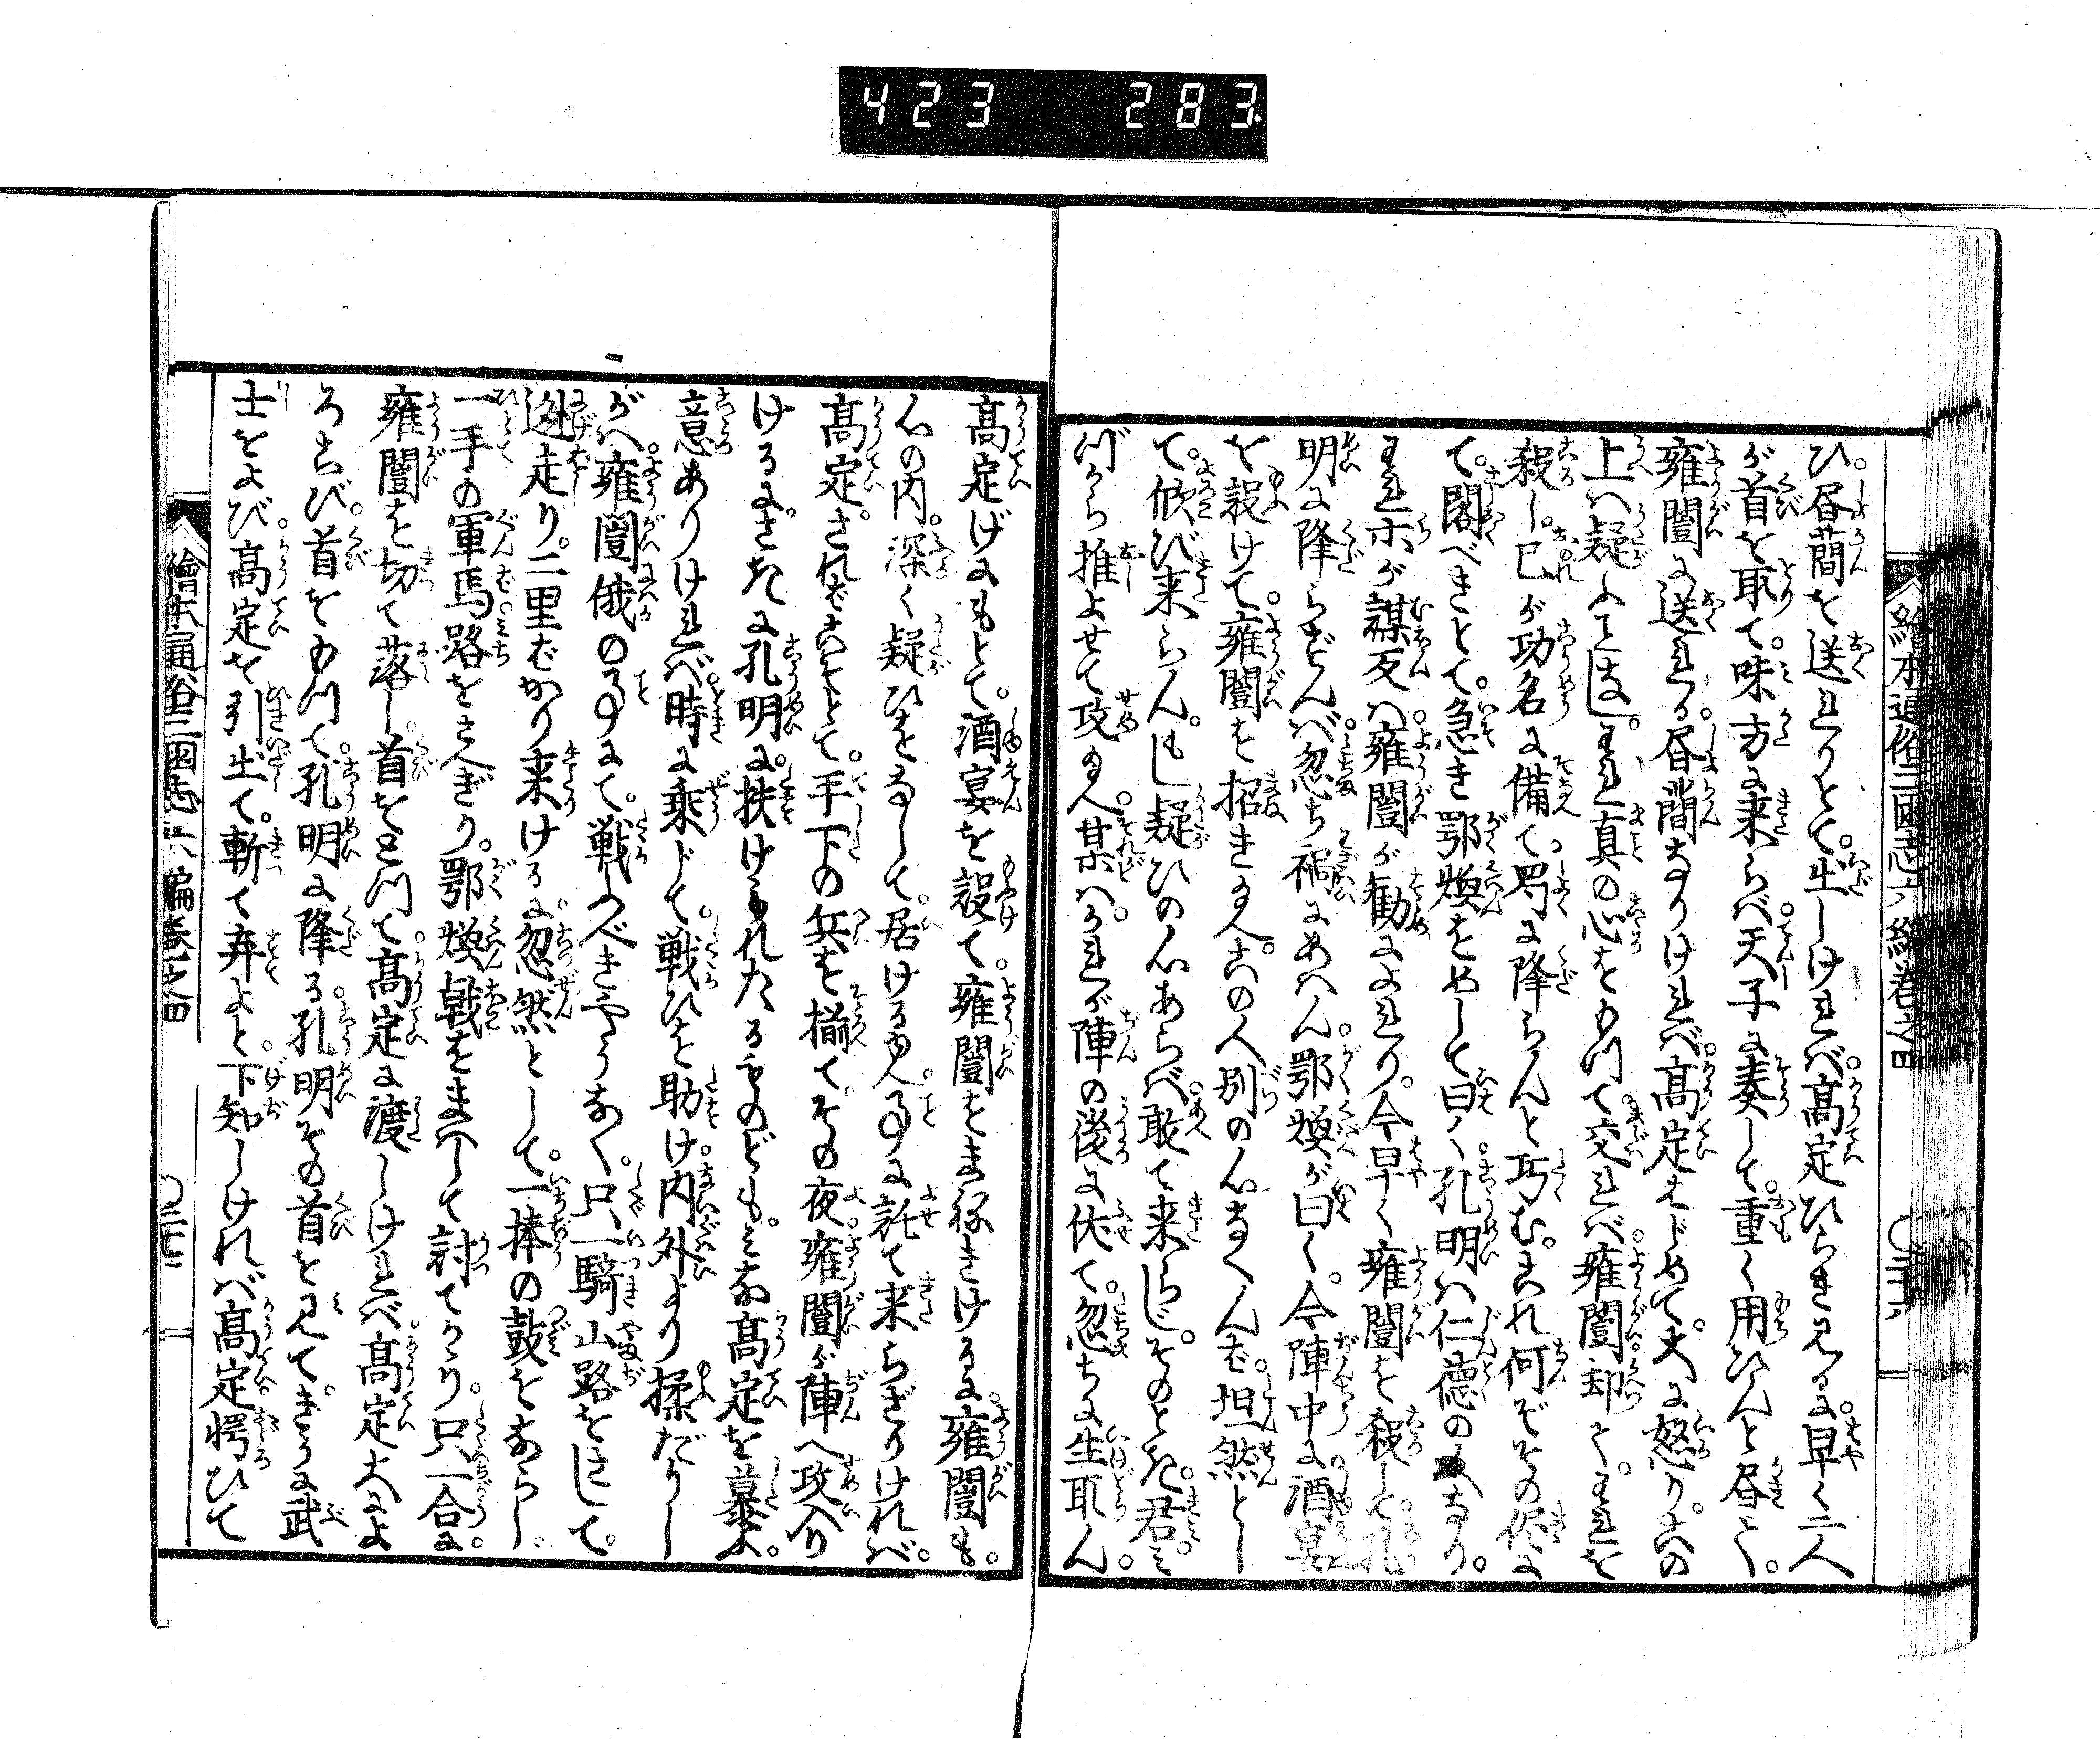 423 283
繪本通俗三國志六編卷之四 〇二十六
ひ。書簡を送れりとて。出しければ。高定ひらき見るに。早く二人
が首を取て。味方に来らば。天子に奏して。重く用ひんと書く。
雍闓に送れる。書簡なりければ。高定はじめて。大に怒り。この
上は疑ふことなし。われ真の心をもつて。交れば。雍闓却て。われを
殺し。己が功名に備て。蜀に降らんと巧む。これ何ぞその侭に
て。閣べきとて。急き鄂煥をめして曰く。孔明は仁徳の人なり。
われホが謀反は。雍闓が勧によれり。今早く雍闓を殺して。孔
明に降らずんば。忽ち禍にあはん。鄂煥が曰く。今陣中に。酒宴
を設けて。雍闓を招き玉へ。この人別の心なくんば。坦然とし
て。欣び来らん。もし疑ひの心あらば。敢て来らじ。そのとき。君ミ
づから推よせて攻玉へ。某はこれが陣の後に伏て。忽ちに生取ん。
高定げにもとて。酒宴を設て。雍闓をまねきけるに。雍闓も。
心の内。深く疑ひをなして。居ける間。事に託て来らざりければ。
高定。さればこそとて。手下の兵を揃て。その夜。雍闓が陣へ攻入り
けるに。さきに孔明に扶けられたるものども。ミな高定を慕ふ。
意ありければ。時に乗じて。戦ひを助け。内外より揉だりし
が。雍闓俄の事にて。戦ふべきやうなく。只一騎山路をさして。
逃走り。二里ばかり来けるに。忽然として。一捧の鼓をならし。
一手の軍馬路をさへぎり。鄂煥戟をまはして討てかゝり。只一合に。
雍闓を切て落し。首をとつて高定に渡しければ。高定大によ
ろこび。首をもつて。孔明に降る。孔明その首を見て。きうに武
士をよび。高定を引出て。斬て弃よと下知しければ。高定愕ひて
繪本通俗三國志六編卷之四 〇二十七